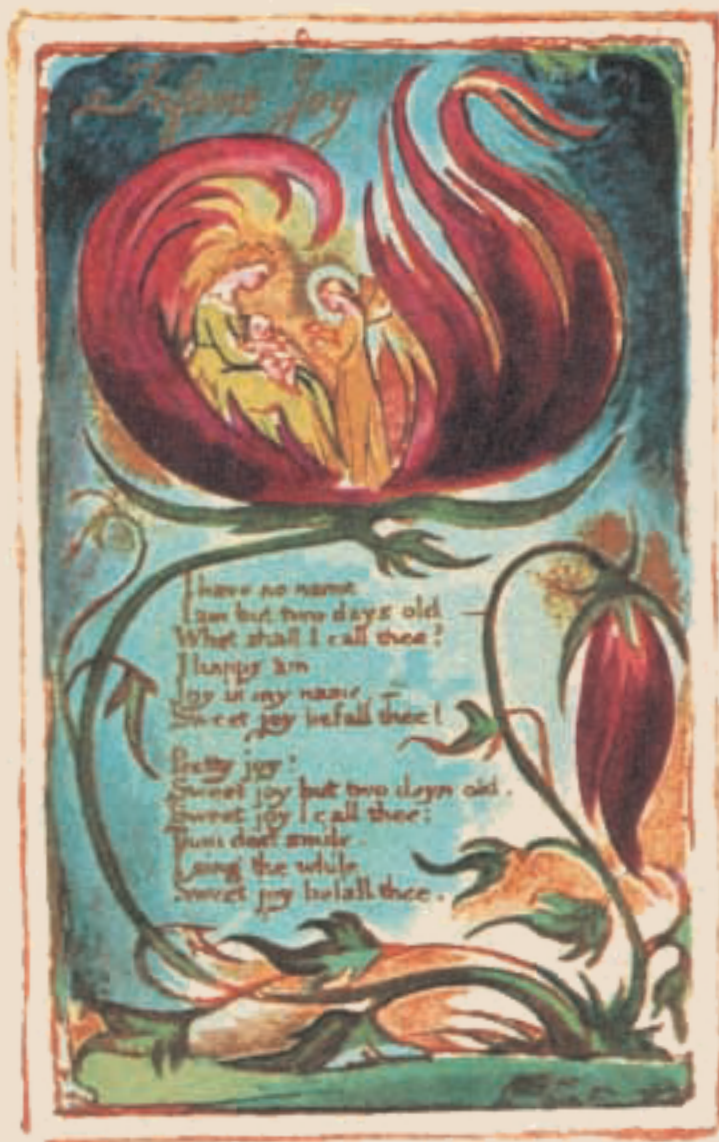 Infant Joy
I have no name
I am but two days old
What shall I call thee?
I happy am
Joy is my name
Sweet joy befall thee!
Pretty joy!
Sweet joy but two days old.
Sweet joy I call thee:
Thou dost smile.
I sing the while
Sweet joy befall thee.